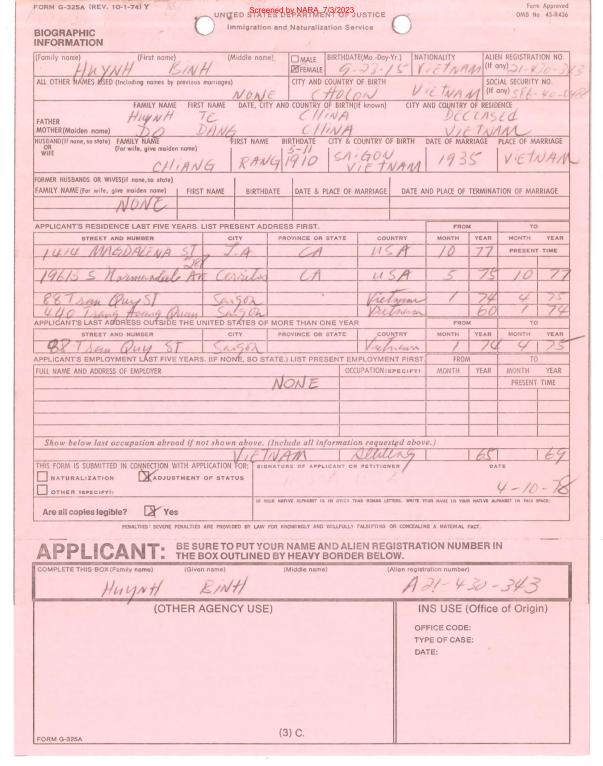 Screened by NARA, 7/3/2023
FORM G-325A (REV. 10-1-74) Y
Form Approved
OMB No. 43-R436
UNITED STATES DEPARTMENT OF JUSTICE
Immigration and Naturalization Service
BIOGRAPHIC
INFORMATION
(Family name) (First name) (Middle name) MALE FEMALE BIRTHDATE(Mo.-Day-Yr.) NATIONALITY ALIEN REGISTRATION NO. (If any)
HUYNH BINH 9-23-15 VIETNAM 21-430-343
ALL OTHER NAMES USED (Including names by previous marriages) CITY AND COUNTRY OF BIRTH SOCIAL SECURITY NO. (If any)
NONE CHOLON VIETNAM
FAMILY NAME FIRST NAME DATE, CITY AND COUNTRY OF BIRTH(If known) CITY AND COUNTRY OF RESIDENCE
FATHER HUYNH TE CHINA DECEASED
MOTHER(Maiden name) DO DANG CHINA VIETNAM
HUSBAND(If none, so state) OR WIFE FAMILY NAME (For wife, give maiden name) FIRST NAME BIRTHDATE CITY & COUNTRY OF BIRTH DATE OF MARRIAGE PLACE OF MARRIAGE
CHIANG RANG 5-11 1910 SAIGON VIETNAM 1935 VIETNAM
FORMER HUSBANDS OR WIVES(if none, so state)
FAMILY NAME (For wife, give maiden name) FIRST NAME BIRTHDATE DATE & PLACE OF MARRIAGE DATE AND PLACE OF TERMINATION OF MARRIAGE
NONE
APPLICANT'S RESIDENCE LAST FIVE YEARS. LIST PRESENT ADDRESS FIRST. FROM TO
STREET AND NUMBER CITY PROVINCE OR STATE COUNTRY MONTH YEAR MONTH YEAR
1414 MAGDALENA ST J.A CA USA 10 77 PRESENT TIME
19615 S Normandale Ave Cerritos CA USA 5 75 10 77
88 Tran Quy ST Saigon Vietnam 1 74 4 75
440 Trang Hoang Quan Saigon Vietnam 60 1 74
APPLICANT'S LAST ADDRESS OUTSIDE THE UNITED STATES OF MORE THAN ONE YEAR FROM TO
STREET AND NUMBER CITY PROVINCE OR STATE COUNTRY MONTH YEAR MONTH YEAR
88 Tran Quy ST Saigon Vietnam 1 74 4 75
APPLICANT'S EMPLOYMENT LAST FIVE YEARS. (IF NONE, SO STATE.) LIST PRESENT EMPLOYMENT FIRST. FROM TO
FULL NAME AND ADDRESS OF EMPLOYER OCCUPATION (SPECIFY) MONTH YEAR MONTH YEAR
NONE PRESENT TIME
Show below last occupation abroad if not shown above. (Include all information requested above.)
VIETNAM 65 69
THIS FORM IS SUBMITTED IN CONNECTION WITH APPLICATION FOR: SIGNATURE OF APPLICANT OR PETITIONER DATE
NATURALIZATION X ADJUSTMENT OF STATUS
OTHER (SPECIFY): 4-10-78
IF YOUR NATIVE ALPHABET IS IN OTHER THAN ROMAN LETTERS, WRITE YOUR NAME IN YOUR NATIVE ALPHABET IN THIS SPACE:
Are all copies legible? X Yes
PENALTIES: SEVERE PENALTIES ARE PROVIDED BY LAW FOR KNOWINGLY AND WILLFULLY FALSIFYING OR CONCEALING A MATERIAL FACT.
APPLICANT: BE SURE TO PUT YOUR NAME AND ALIEN REGISTRATION NUMBER IN
THE BOX OUTLINED BY HEAVY BORDER BELOW.
COMPLETE THIS BOX (Family name) (Given name) (Middle name) (Alien registration number)
HUYNH BINH A21-430-343
(OTHER AGENCY USE) INS USE (Office of Origin)
OFFICE CODE:
TYPE OF CASE:
DATE:
(3) C.
FORM G-325A